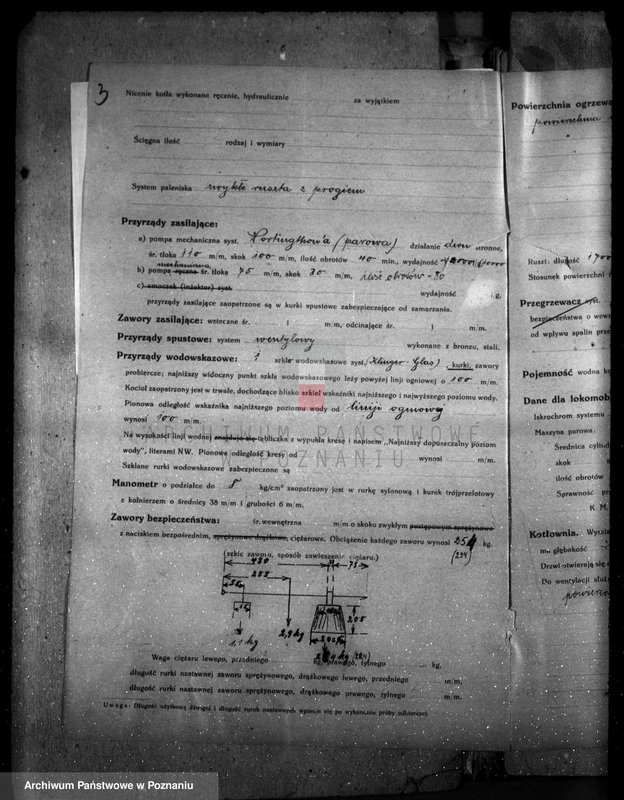 3
Nicenie kotła wykonane ręcznie, hydraulicznie za wyjątkiem
Ścięgna ilość rodzaj i wymiary
System paleniska zwykłe ruszta z progiem
Przyrządy zasilające:
a) pompa mechaniczna syst. (parowa) działanie dwu stronne,
śr. tłoka 110 m/m, skok 100 m/m, ilość obrotów 40 min., wydajność
mechaniczna
b) pompa ręczna śr. tłoka 75 m/m, skok 30 m/m, ilość obrotów
c) smoczek (inżektor) syst. wydajność g.
przyrządy zasilające zaopatrzone są w kurki spustowe zabezpieczające od zamarzania.
Zawory zasilające: wsteczne śr. m/m, odcinające śr. m/m.
Przyrządy spustowe: system wentylowy wykonane z bronzu, stali,
Przyrządy wodowskazowe: 1 szkła wodowskazowe syst. (Klinger-Glas) kurki, zawory
probiercze; najniższy widoczny punkt szkła wodowskazowego leży powyżej linji ogniowej o 100 m/m.
Kocioł zaopatrzony jest w trwałe, dochodzące blisko szkieł wskaźniki najniższego i najwyższego poziomu wody.
Pionowa odległość wskaźnika najniższego poziomu wody od linji ogniowej
wynosi 100 m/m.
Na wysokości linji wodnej znajduje się tabliczka z wypukłą kresą i napisem „Najniższy dopuszczalny poziom
wody", literami NW. Pionowa odległość kresy od wynosi m/m.
Szklane rurki wodowskazowe zabezpieczone są
Manometr o podziałce do 8 kg/cm² zaopatrzony jest w rurkę syfonową i kurek trójprzelotowy
z kołnierzem o średnicy 38 m/m i grubości 6 m/m.
Zawory bezpieczeństwa: śr. wewnętrzna m/m o skoku zwykłym postępowym sprężynowe
z naciskiem bezpośrednim, sprężynowe drążkowe, ciężarowe. Obciążenie każdego zaworu wynosi kg.
(234)
(szkic zaworu, sposób zawieszenia ciężaru.)
480 75
255
205
1,1 kg 2,9 kg
Waga ciężaru lewego, przedniego kg, prawego, tylnego kg.
długość rurki nastawnej zaworu sprężynowego, drążkowego lewego, przedniego m/m.
długość rurki nastawnej zaworu sprężynowego, drążkowego prawego, tylnego m/m.
Uwaga: Długość użytkową dźwigni i długość rurek nastawnych wpisuje się po wykonaniu próby odbiorczej.
Powierzchnia ogrzewa
powierzchnia
Ruszt: długość 1700
Stosunek powierzchni
Przegrzewacz syst.
bezpieczeństwa o wew
od wpływu spalin prze
Pojemność wodna ko
Dane dla lokomob
Iskrochron systemu
Maszyna parowa:
Średnica cylin
skok
ilość obrotów
Sprawność pr
K. M.
Kotłownia. Wyrzi
mu głębokość
Drzwi otwierają się
Do wentylacji służ
powierz
ARCHIWUM PAŃSTWOWE
W POZNANIU
Archiwum Państwowe w Poznaniu